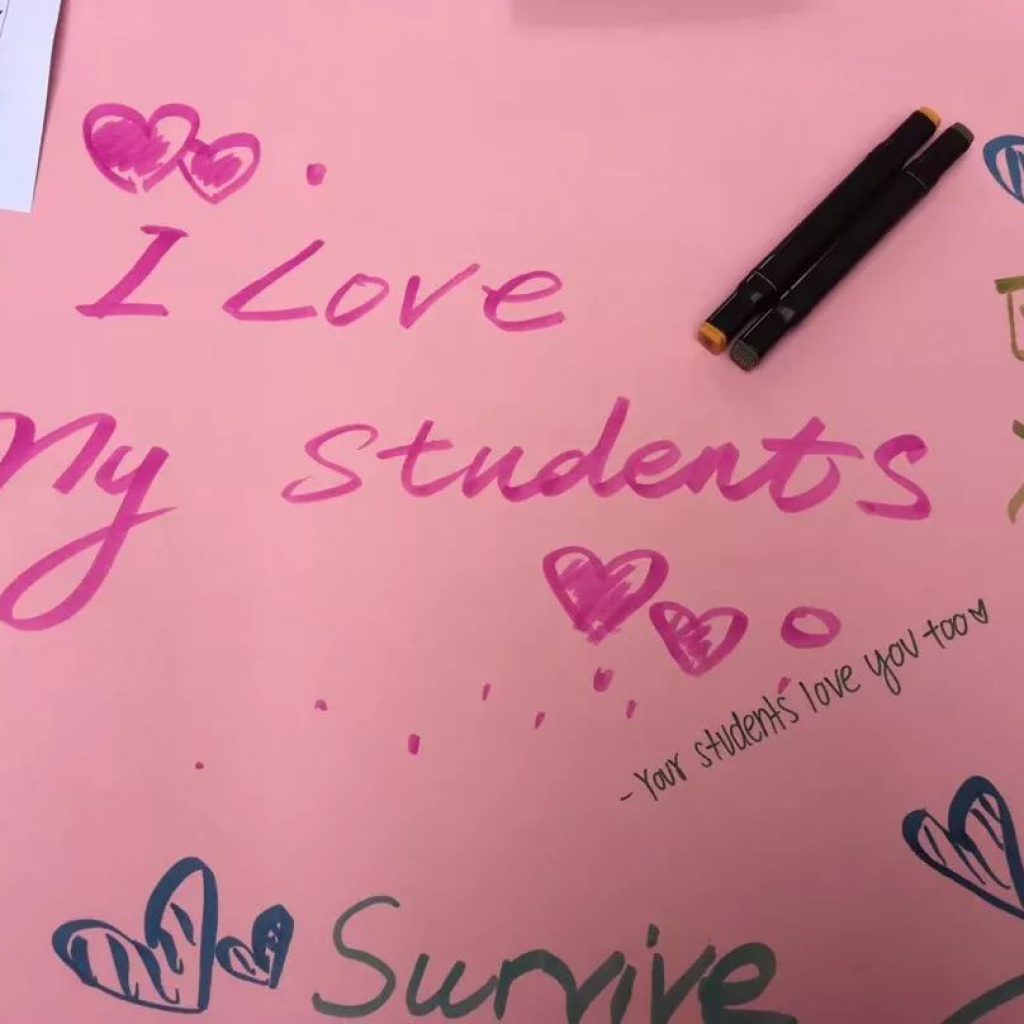 I Love
My students
- Your students love you too
Survive